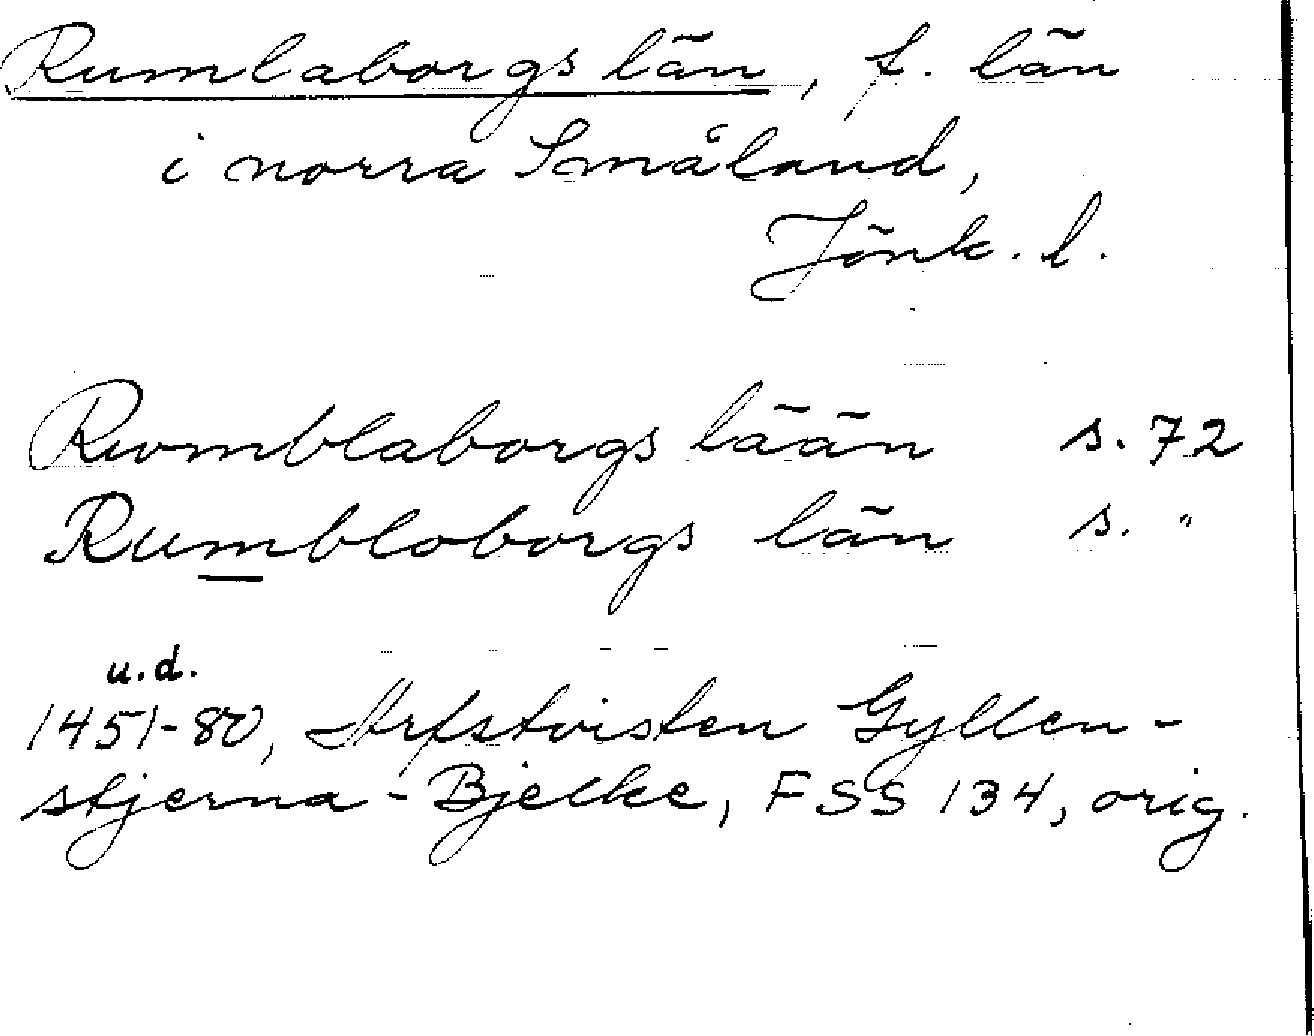 Rumlaborgs län, f. län
i norra Småland,
Jönk. l.
Rwmblaborgs lään s. 72
Rumbloborgs län s. "
u.d.
1451-80, Arfstvisten Gyllen-
stjerna - Bjelke, FSS 134, orig.